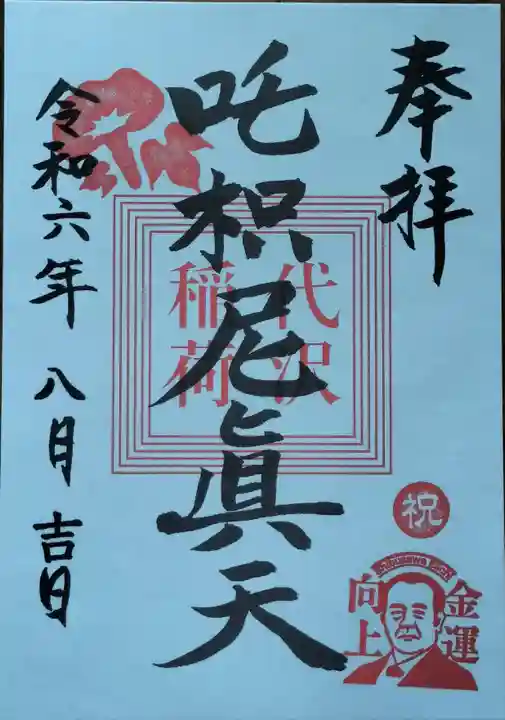 奉拝
代沢
稲荷
吒枳尼眞天
令和六年 八月 吉日
祝
Shibusawa Eiichi
金運
向上